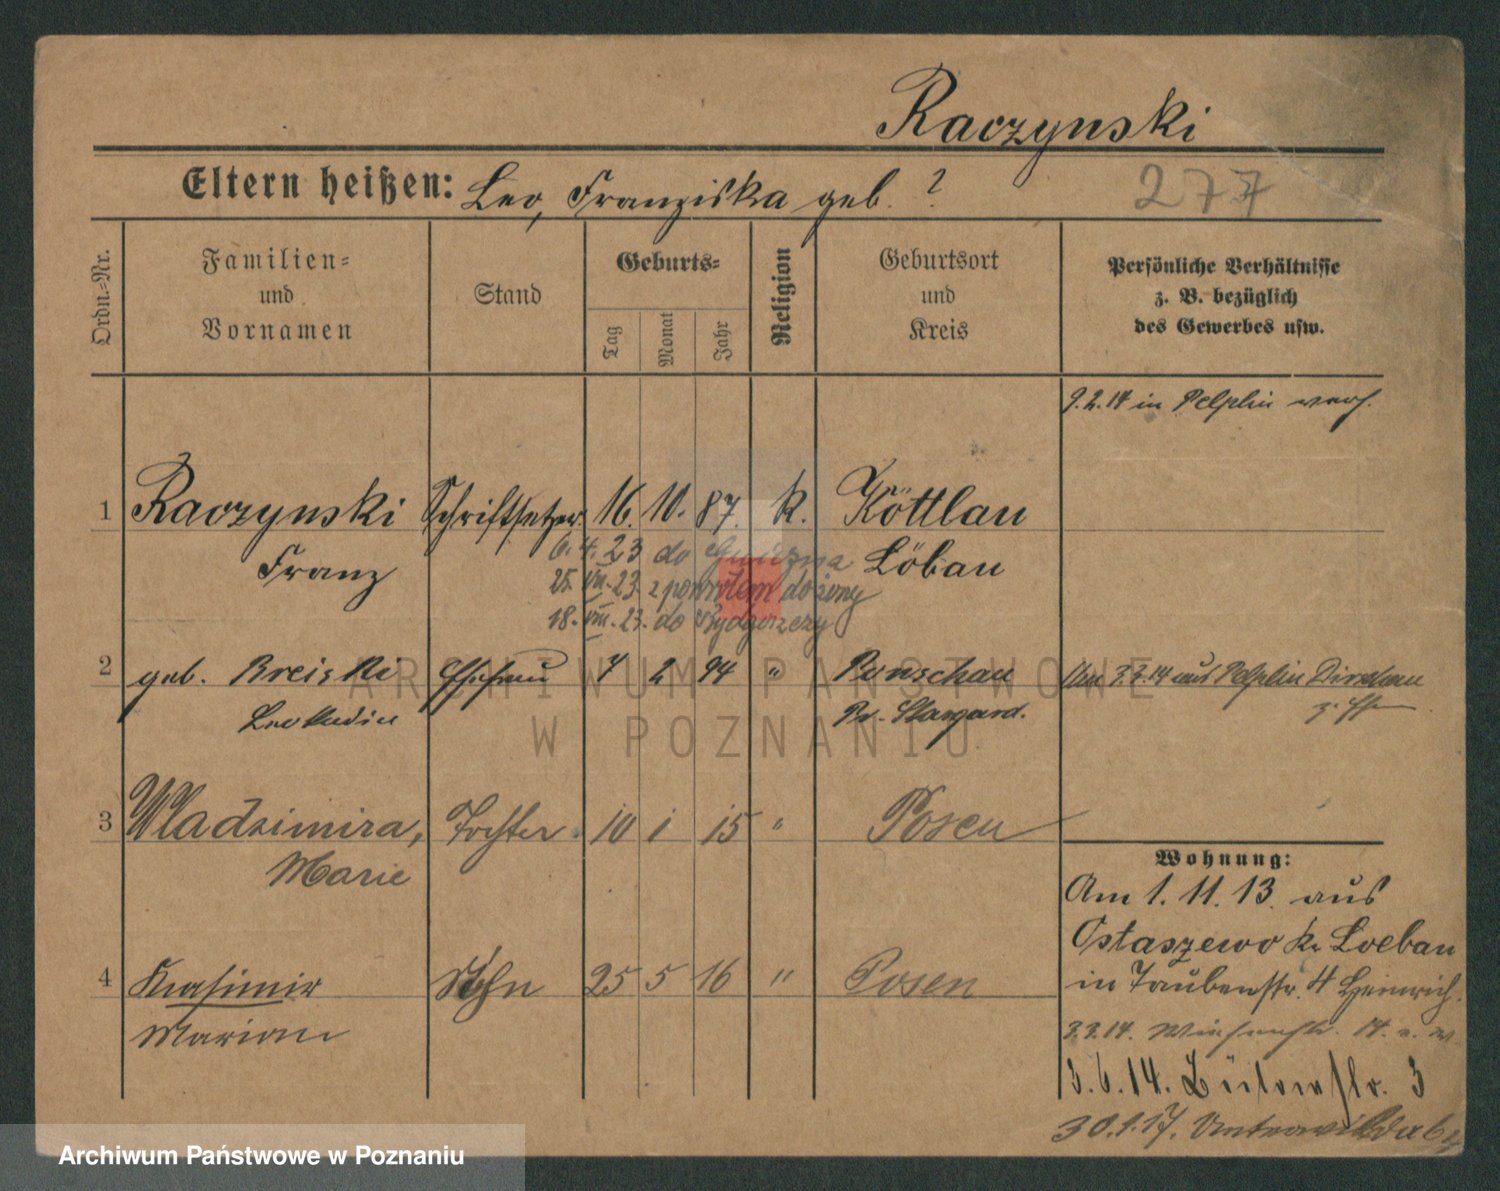 Raczynski
Eltern heißen: Leo, Franziska geb. ?
277
Ordn.-Nr.
Familien-
und
Vornamen
Stand
Geburts-
Tag
Monat
Jahr
Religion
Geburtsort
und
Kreis
Persönliche Verhältnisse
z. B. bezüglich
des Gewerbes usw.
9.2.14 in Pelplin verh.
1 Raczynski Schriftsetzer 16. 10. 87. k. Köttlau
Franz Löbau
6. 4. 23 do Gniezna
25. VII. 23. z powrotem do żony
18. VIII. 23. do Bydgoszczy
2 geb. Breiski Ehefrau 7 2 94 " Ponschau
Leokadia Pr. Stargard.
Am 3.3.14 aus Pelplin Dirschau
3 Wladzimira, Tochter 10 1 15 " Posen
Marie
4 Kasimir Sohn 25 5 16 " Posen
Marian
Wohnung:
Am 1. 11. 13. aus
Ostaszewo Kr Loebau
in Taubenstr. 4 Heinrich.
3.3.14. 14.
3.6.14. 3
30.1.17. Unterwilda
ARCHIWUM PAŃSTWOWE
W POZNANIU
Archiwum Państwowe w Poznaniu